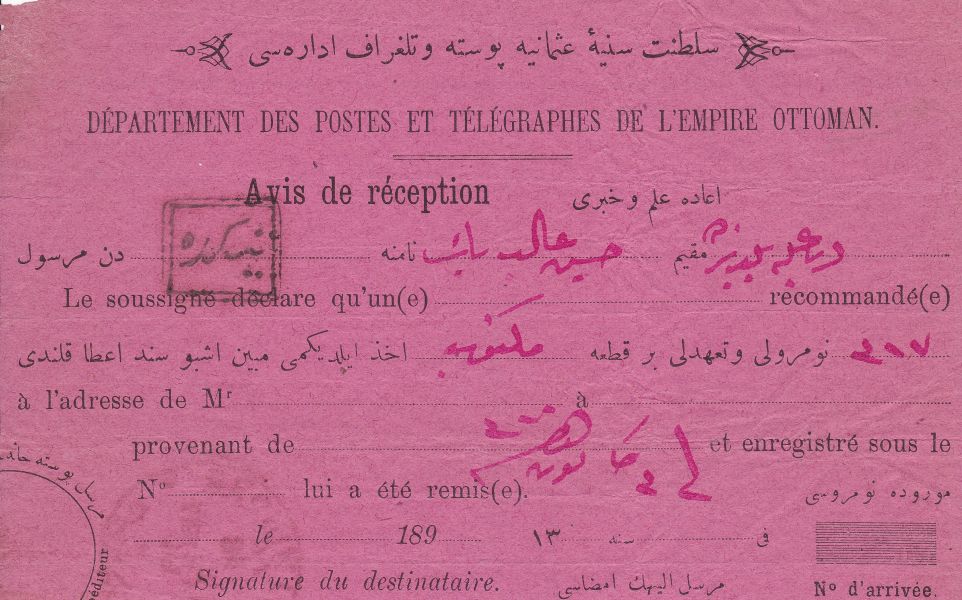 سلطنت سنیهٔ عثمانیه پوسته و تلغراف اداره‌سی
DÉPARTEMENT DES POSTES ET TÉLÉGRAPHES DE L'EMPIRE OTTOMAN.
Avis de réception اعاده علم و خبری
مقیم حسین غالب بك نامنه دن مرسول
Le soussigné déclare qu'un(e) recommandé(e)
نومرولی و تعهدلی بر قطعه مكتوب اخذ ایلدیكمی مبین اشبو سند اعطا قلندی
à l'adresse de Mʳ à
provenant de et enregistré sous le
Nº lui a été remis(e). موروده نومروسی
le 189 في سنه ١٣
Signature du destinataire. مرسل الیهك امضاسی Nº d'arrivée.
مرسل پوسته خانه
éditeur